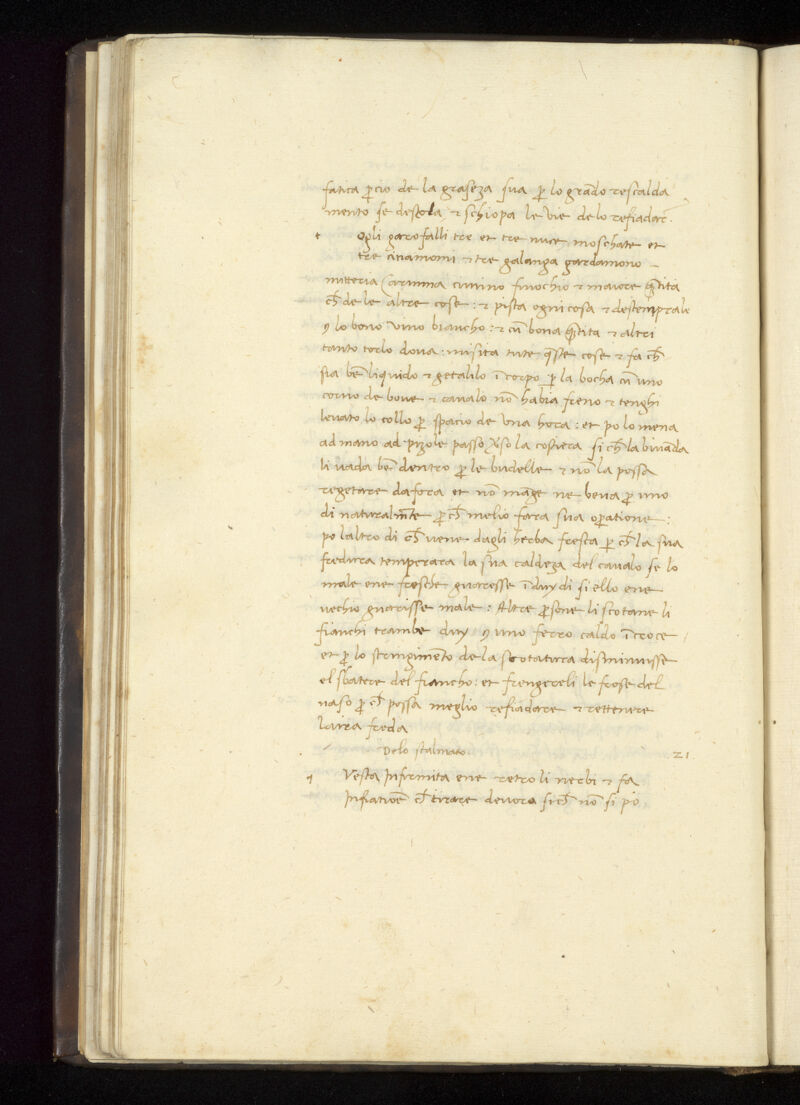 fatica p̄cio de la graseza sua p̄ lo grādo rescalda
mento se destola ⁊ schiopa le vie de lo refiadar̄.
ogli garofalli tre et tre nuce moschate et
tre cinamomi ⁊ tre galanga gardamono
mitteria Carumna cumino finochio ⁊ maiore q̄tita
ch̄ de le altre cose : ⁊ pista ogni cosa ⁊ destemprale
 lo bono vino biancho : ⁊ cū bona q̄tita ⁊ altri
tanto torlo dova : misita tute q̄ste cose ⁊ fa ch̄
sia bē liquido ⁊ getalilo ī corpo p̄ la bocha cū uno
corno de boue ⁊ cavalo nō habia freno ⁊ tenghi
levato lo collo p̄ spacio de una hora : et po lo mena
ad mano ad pizole passo v̄so la costiera si ch̄ la bivāda
li vada bē dentro p̄ le budelle ⁊ nō la possa
regetare dafora et nō māge ne beva p̄ uno
di naturalm̄te p̄ch̄ melio fara sua op̄atione :
po laltro di ch̄ vene dagli herba fresca p̄ ch̄ la sua
fredura temperara la sua caldeza del cavalo se lo
male ene fresche guaresse ī duy di si ello ene
vechio guarisse male : Altre p̄sone li scotane li
fianchi trambe duy  uno ferro caldo ī croce
et p̄ lo stringimēto de la scotatura disminuisse
el sbatere del fiancho : et frengereli le frose del
naso p̄ ch̄ possa meglio refiadare ⁊ rettenere
laira freda
Delo stalmato. 21
Vesta Infirmita ene retro li nerbi ⁊ fa
Infiatiōe ch̄ tirare devora sich̄ nō si po